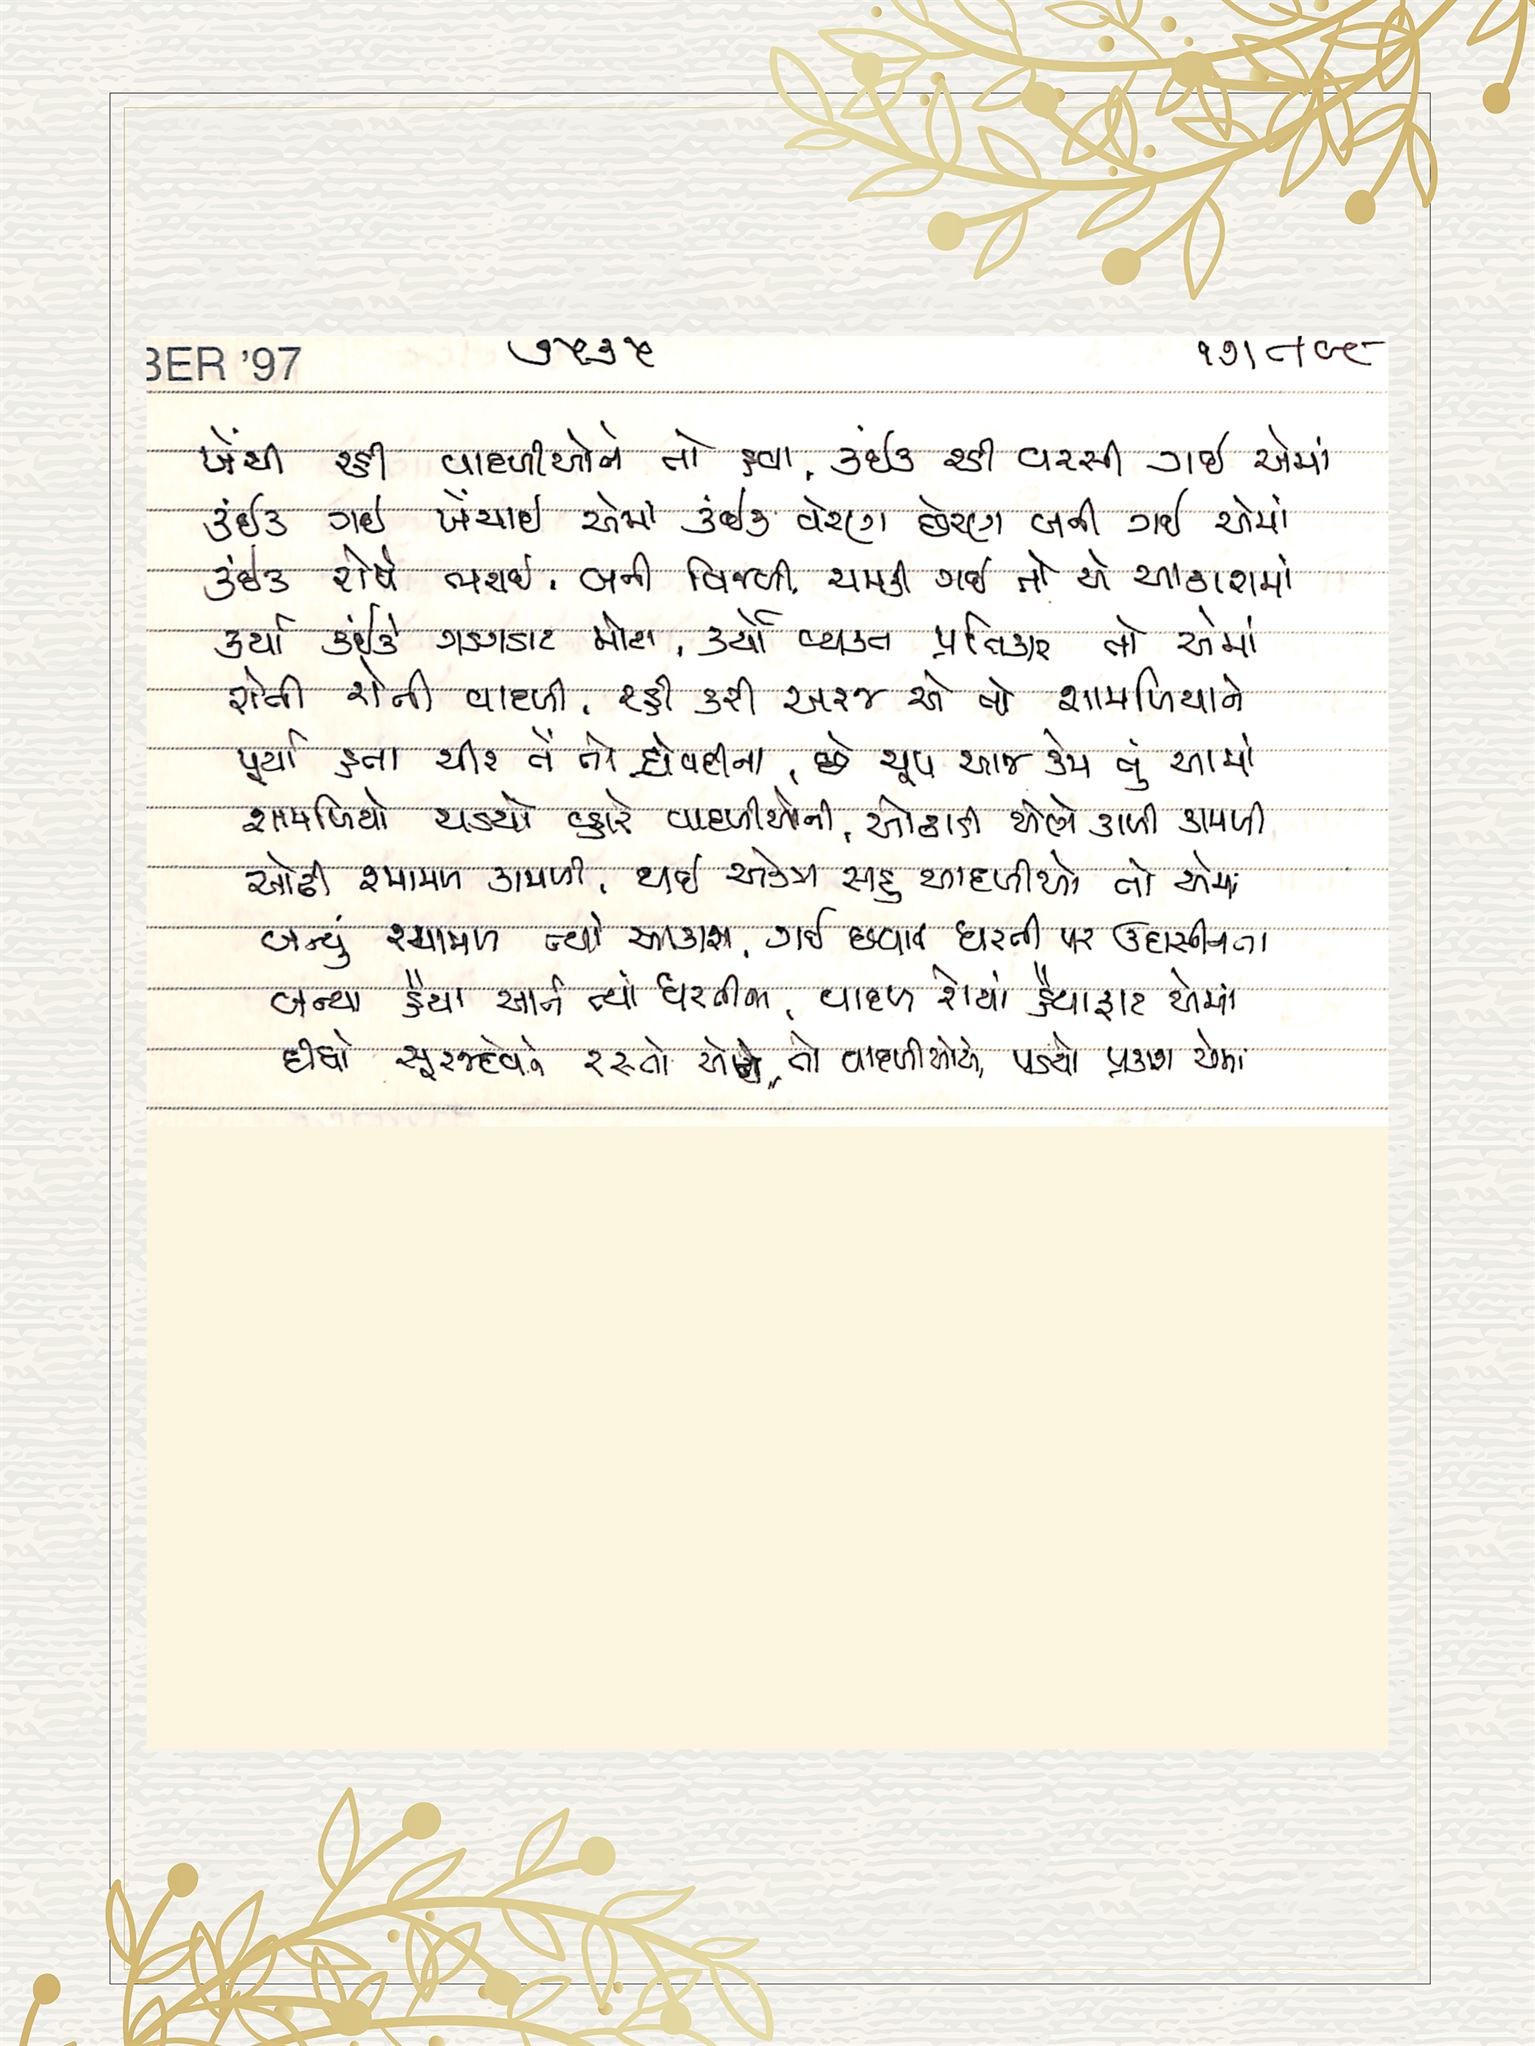 BER '97 ૭૫૩૫ ૧૭।૮।૯૮
ખેંચી રહી વાદળીઓને તો હવા, કંઈક રહી વરસી ગઈ એમાં
કંઈક ગઈ ખેંચાઈ એમાં કંઈક વેરણ છેરણ બની ગઈ એમાં
કંઈક રોષે ભરાઈ, બની વિજળી, ચમકી ગઈ તો એ આકાશમાં
કર્યા કંઈકે ગડગડાટ મોટા, કર્યો વ્યક્ત પ્રતિકાર તો એમાં
રોતી રોતી વાદળી, રહી કરી અરજ એ તો શામળિયાને
પૂર્યા હતા ચીર તેં તો દ્રૌપદીના, છે ચૂપ આજ કેમ તું આમાં
શામળિયો ચડયો વ્હારે વાદળીઓની, ઓઢાડી એણે કાળી કામળી
ઓઢી શ્યામળ કામળી, થઈ એકત્ર સહુ વાદળીઓ તો એમાં
બન્યું શ્યામળ ત્યાં આકાશ, ગઈ છવાઈ ધરતી પર ઉદાસીનતા
બન્યા હૈયા આર્ત ત્યાં ધરતીના, વાદળ રોયાં હૈયાફાટ એમાં
દીધો સૂરજદેવને રસ્તો તો વાદળીઓએ, પડયો પ્રકાશ એમાં